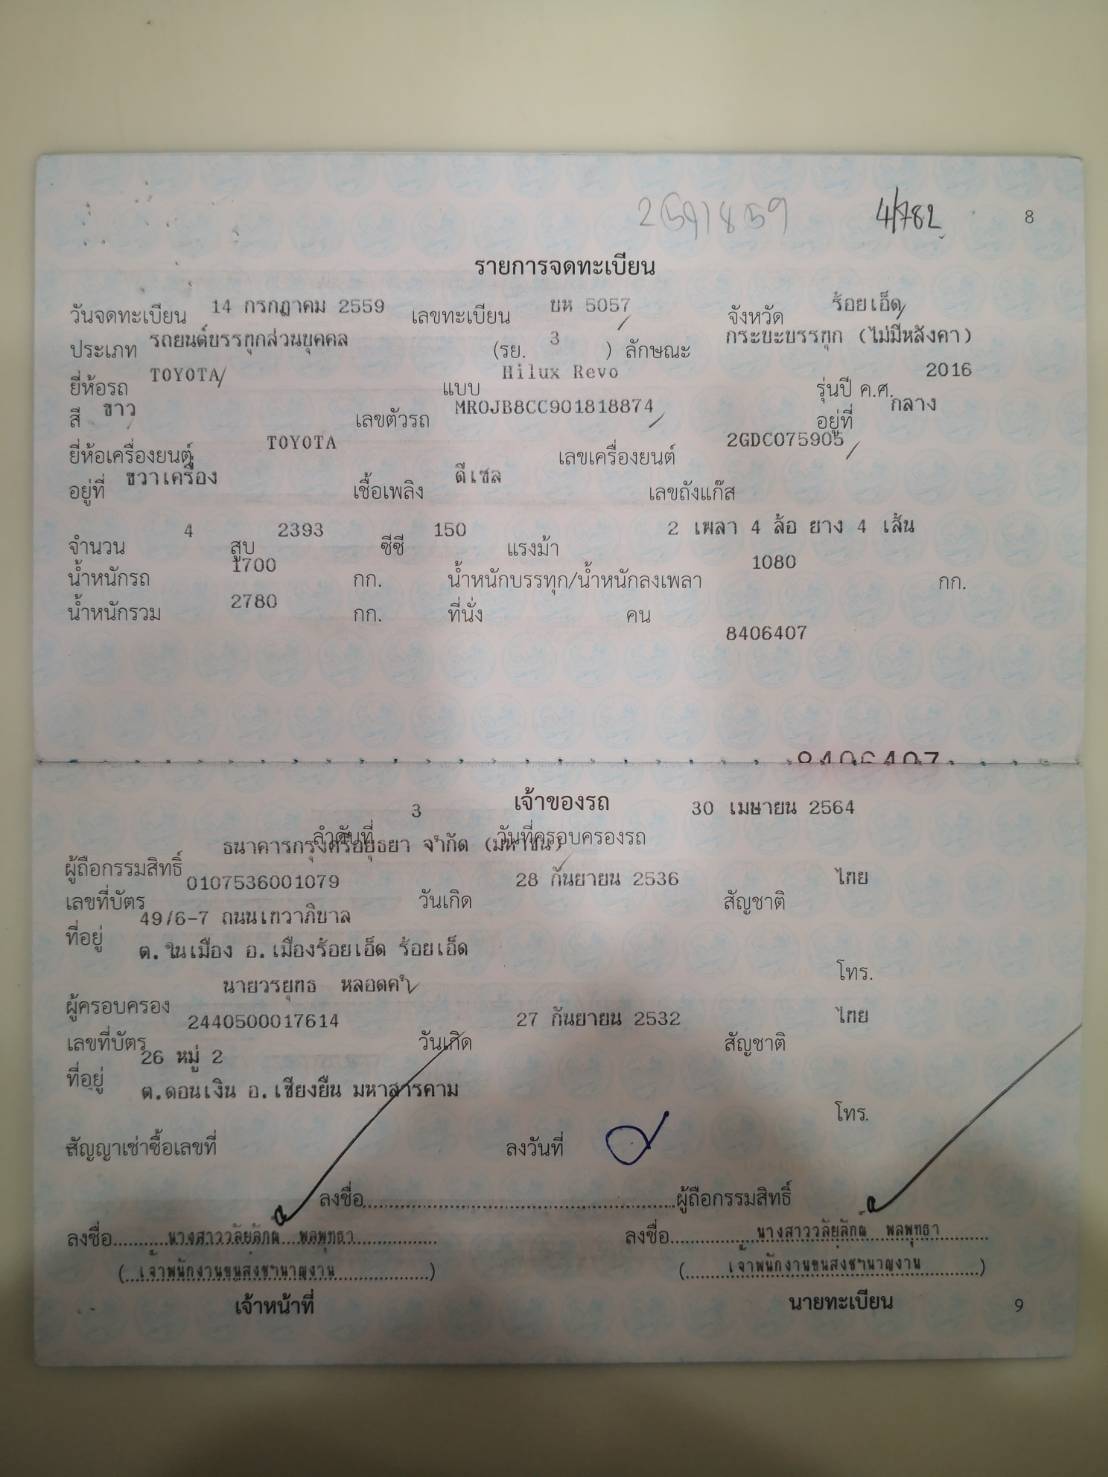 2591859 4/782 8
รายการจดทะเบียน
วันจดทะเบียน 14 กรกฎาคม 2559 เลขทะเบียน ยห 5057 จังหวัด ร้อยเอ็ด
ประเภท รถยนต์บรรทุกส่วนบุคคล (รย. 3 ) ลักษณะ กระบะบรรทุก (ไม่มีหลังคา)
ยี่ห้อรถ TOYOTA แบบ Hilux Revo รุ่นปี ค.ศ. 2016
สี ขาว เลขตัวรถ MR0JB8CC901818874 อยู่ที่ กลาง
ยี่ห้อเครื่องยนต์ TOYOTA เลขเครื่องยนต์ 2GDC075905
อยู่ที่ ขวาเครื่อง เชื้อเพลิง ดีเซล เลขถังแก๊ส
จำนวน 4 สูบ 2393 ซีซี 150 แรงม้า 2 เพลา 4 ล้อ ยาง 4 เส้น
น้ำหนักรถ 1700 กก. น้ำหนักบรรทุก/น้ำหนักลงเพลา 1080 กก.
น้ำหนักรวม 2780 กก. ที่นั่ง คน
8406407
8406407
เจ้าของรถ
ลำดับที่ 3 วันที่ครอบครองรถ 30 เมษายน 2564
ผู้ถือกรรมสิทธิ์ ธนาคารกรุงศรีอยุธยา จำกัด (มหาชน)
เลขที่บัตร 0107536001079 วันเกิด 28 กันยายน 2536 สัญชาติ ไทย
ที่อยู่ 49/6-7 ถนนเทวาภิบาล
ต.ในเมือง อ.เมืองร้อยเอ็ด ร้อยเอ็ด
โทร.
ผู้ครอบครอง นายวรยุทธ หลอดคำ
เลขที่บัตร 2440500017614 วันเกิด 27 กันยายน 2532 สัญชาติ ไทย
ที่อยู่ 26 หมู่ 2
ต.ดอนเงิน อ.เชียงยืน มหาสารคาม
โทร.
สัญญาเช่าซื้อเลขที่ ลงวันที่
ลงชื่อ ผู้ถือกรรมสิทธิ์
ลงชื่อ นางสาววลัยลักณ์ พลพุทธา ลงชื่อ นางสาววลัยลักณ์ พลพุทธา
(เจ้าพนักงานขนส่งชำนาญงาน) (เจ้าพนักงานขนส่งชำนาญงาน)
เจ้าหน้าที่ นายทะเบียน 9